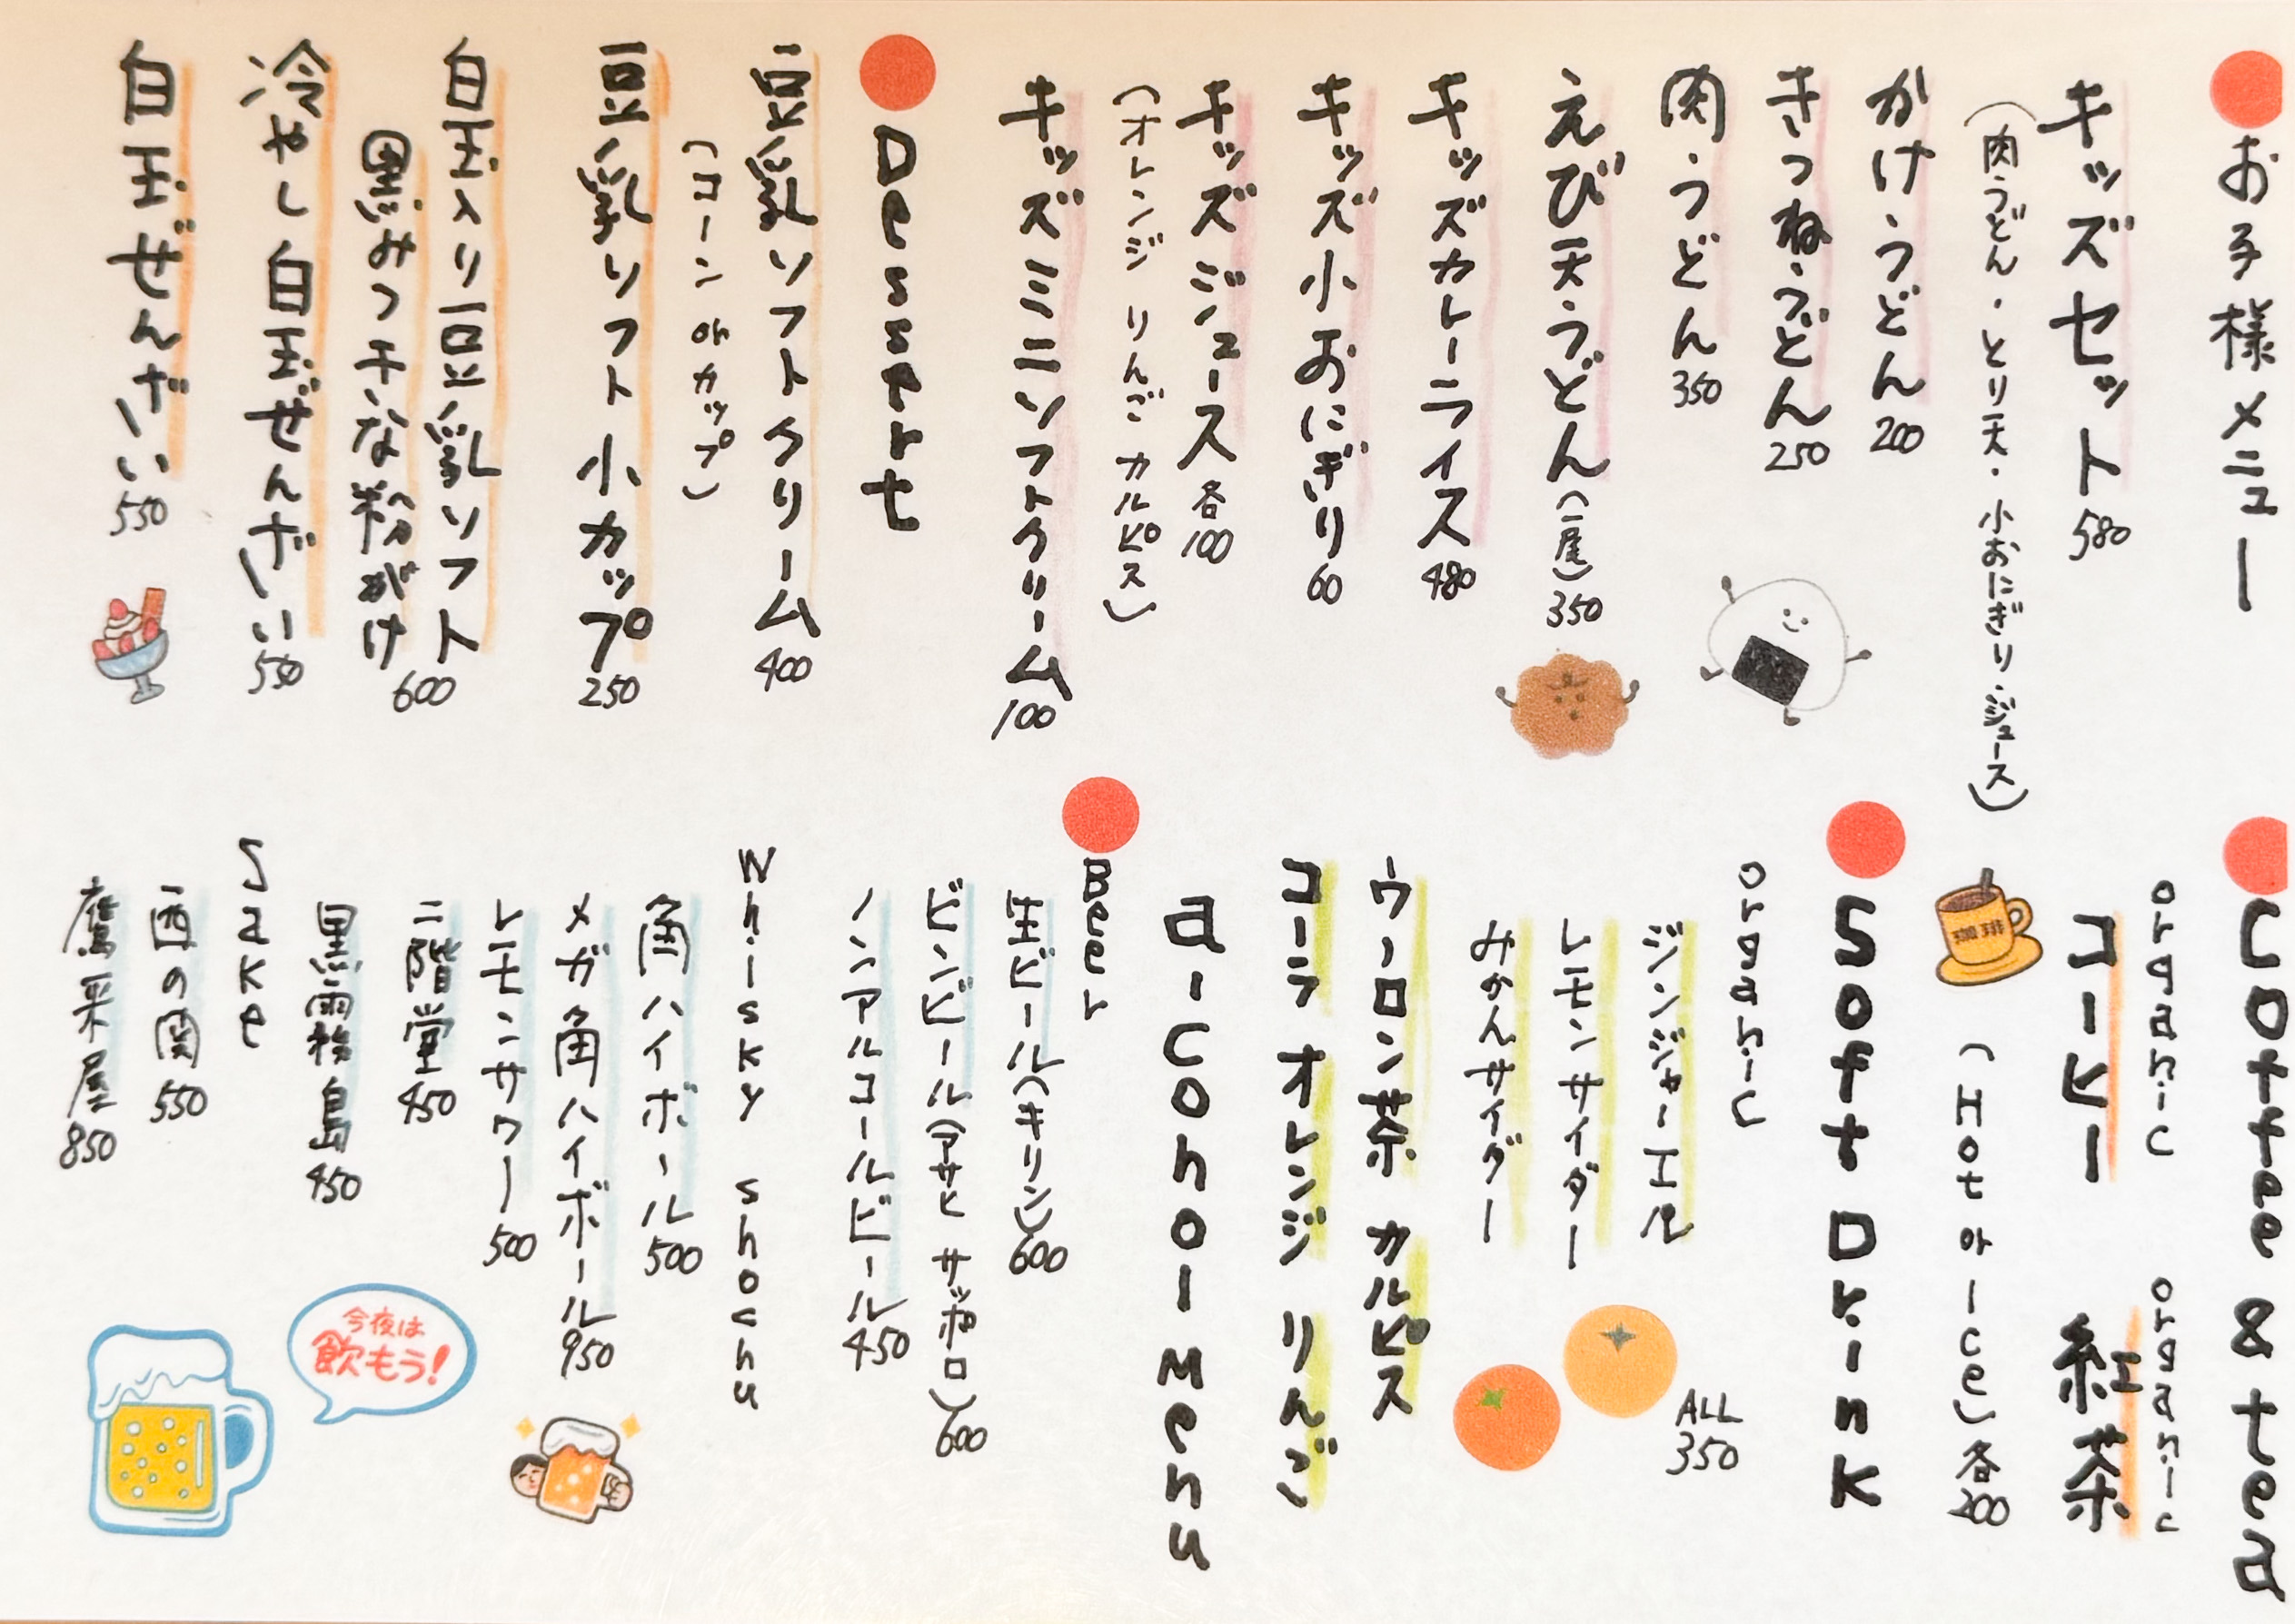 お子様メニュー
キッズセット 580
(肉うどん・とり天・小おにぎり・ジュース)
かけうどん 200
きつねうどん 250
肉うどん 350
えび天うどん(一尾) 350
キッズカレーライス 480
キッズ小おにぎり 60
キッズジュース 各100
(オレンジ りんご カルピス)
キッズミニソフトクリーム 100
Dessert
豆乳ソフトクリーム 400
(コーン or カップ)
豆乳ソフト小カップ 250
白玉入り豆乳ソフト
黒みつきな粉がけ 600
冷やし白玉ぜんざい 550
白玉ぜんざい 550
Coffee & tea
organic organic
コーヒー 紅茶
(Hot or Ice) 各200
Soft Drink
organic
ジンジャーエール
レモンサイダー
みかんサイダー
ALL
350
ウーロン茶 カルピス
コーラ オレンジ りんご
alcohol Menu
Beer
生ビール(キリン) 600
ビンビール(アサヒ サッポロ) 600
ノンアルコールビール 450
Whisky shochu
角ハイボール 500
メガ角ハイボール 950
レモンサワー 500
二階堂 450
黒霧島 450
Sake
西の関 550
鷹来屋 850
今夜は
飲もう!